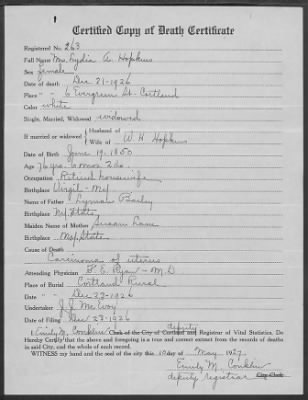 Certified Copy of Death Certificate
Registered No. 263
Full Name Mrs. Lydia A. Hopkins
Sex female
Date of death Dec 21-1926
Place " " 6 Evergreen St. Cortland
Color white
Single, Married, Widowed widowed
Husband of
If married or widowed
Wife of W. H. Hopkins
Date of Birth June 19, 1850
Age 76 yrs. 6 mos 2 ds.
Occupation Retired housewife
Birthplace Virgil - N.Y.
Name of Father Lyman
Birthplace N.Y. State
Maiden Name of Mother Susan Lane
Birthplace N.Y. State
Cause of Death
Carcinoma of uterus
Attending Physician F. E. Ryan - M.D
Place of Burial Cortland Rural
Date " " Dec 23-1926
Undertaker J. J. McEvoy
Date of Filing Dec 23-1926
I, Emily M. Conklin deputy Clerk of the City of Cortland and Registrar of Vital Statistics. Do
Hereby Certify that the above and foregoing is a true and correct extract from the records of deaths
in said City, and the whole of such record.
WITNESS my hand and the seal of the city this 10 day of May 1927.
Emily M. Conklin
deputy registrar City Clerk